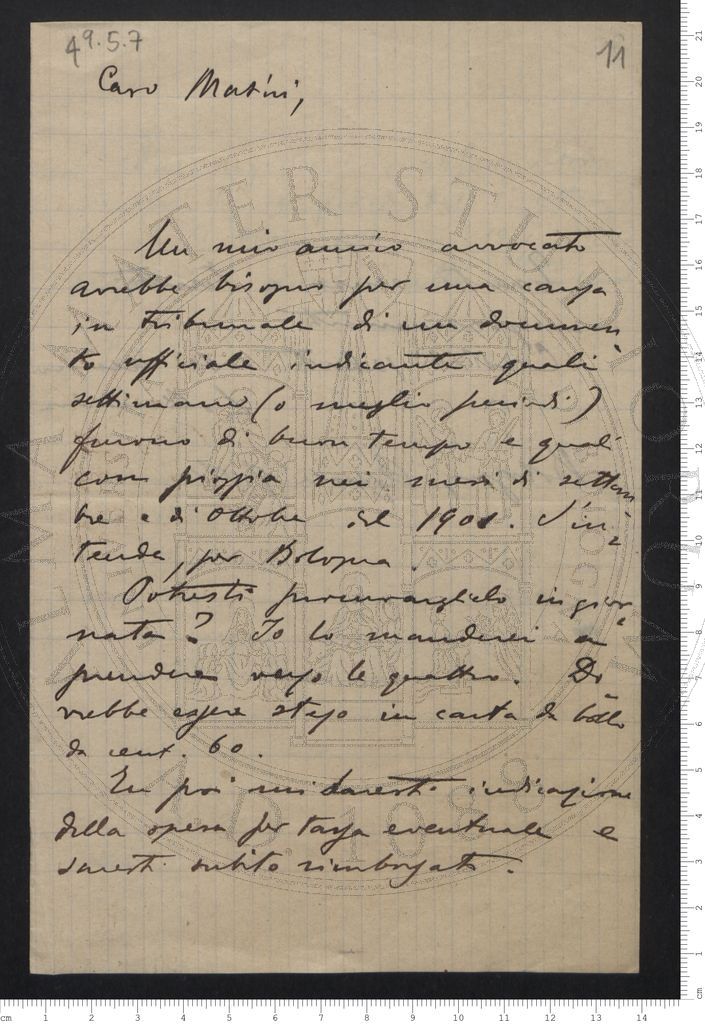 49.5.7
11
Caro Masini,
Un mio amico avvocato
avrebbe bisogno per una causa
in Tribunale di un documen-
to ufficiale indicante quali
settimane (o meglio periodi)
furono di buon tempo e quali
con pioggia nei mesi di settem-
bre e di Ottobre del 1901. S'in-
tende, per Bologna.
Potresti procurarglielo in gior-
nata? Io lo manderei a
prendere verso le quattro. Do-
vrebbe essere steso in carta da bollo
da cent. 60.
Tu poi mi daresti indicazione
della spesa per tassa eventuale e
saresti subito rimborsato.
ALMA MATER STUDIORUM
A.D. 1088